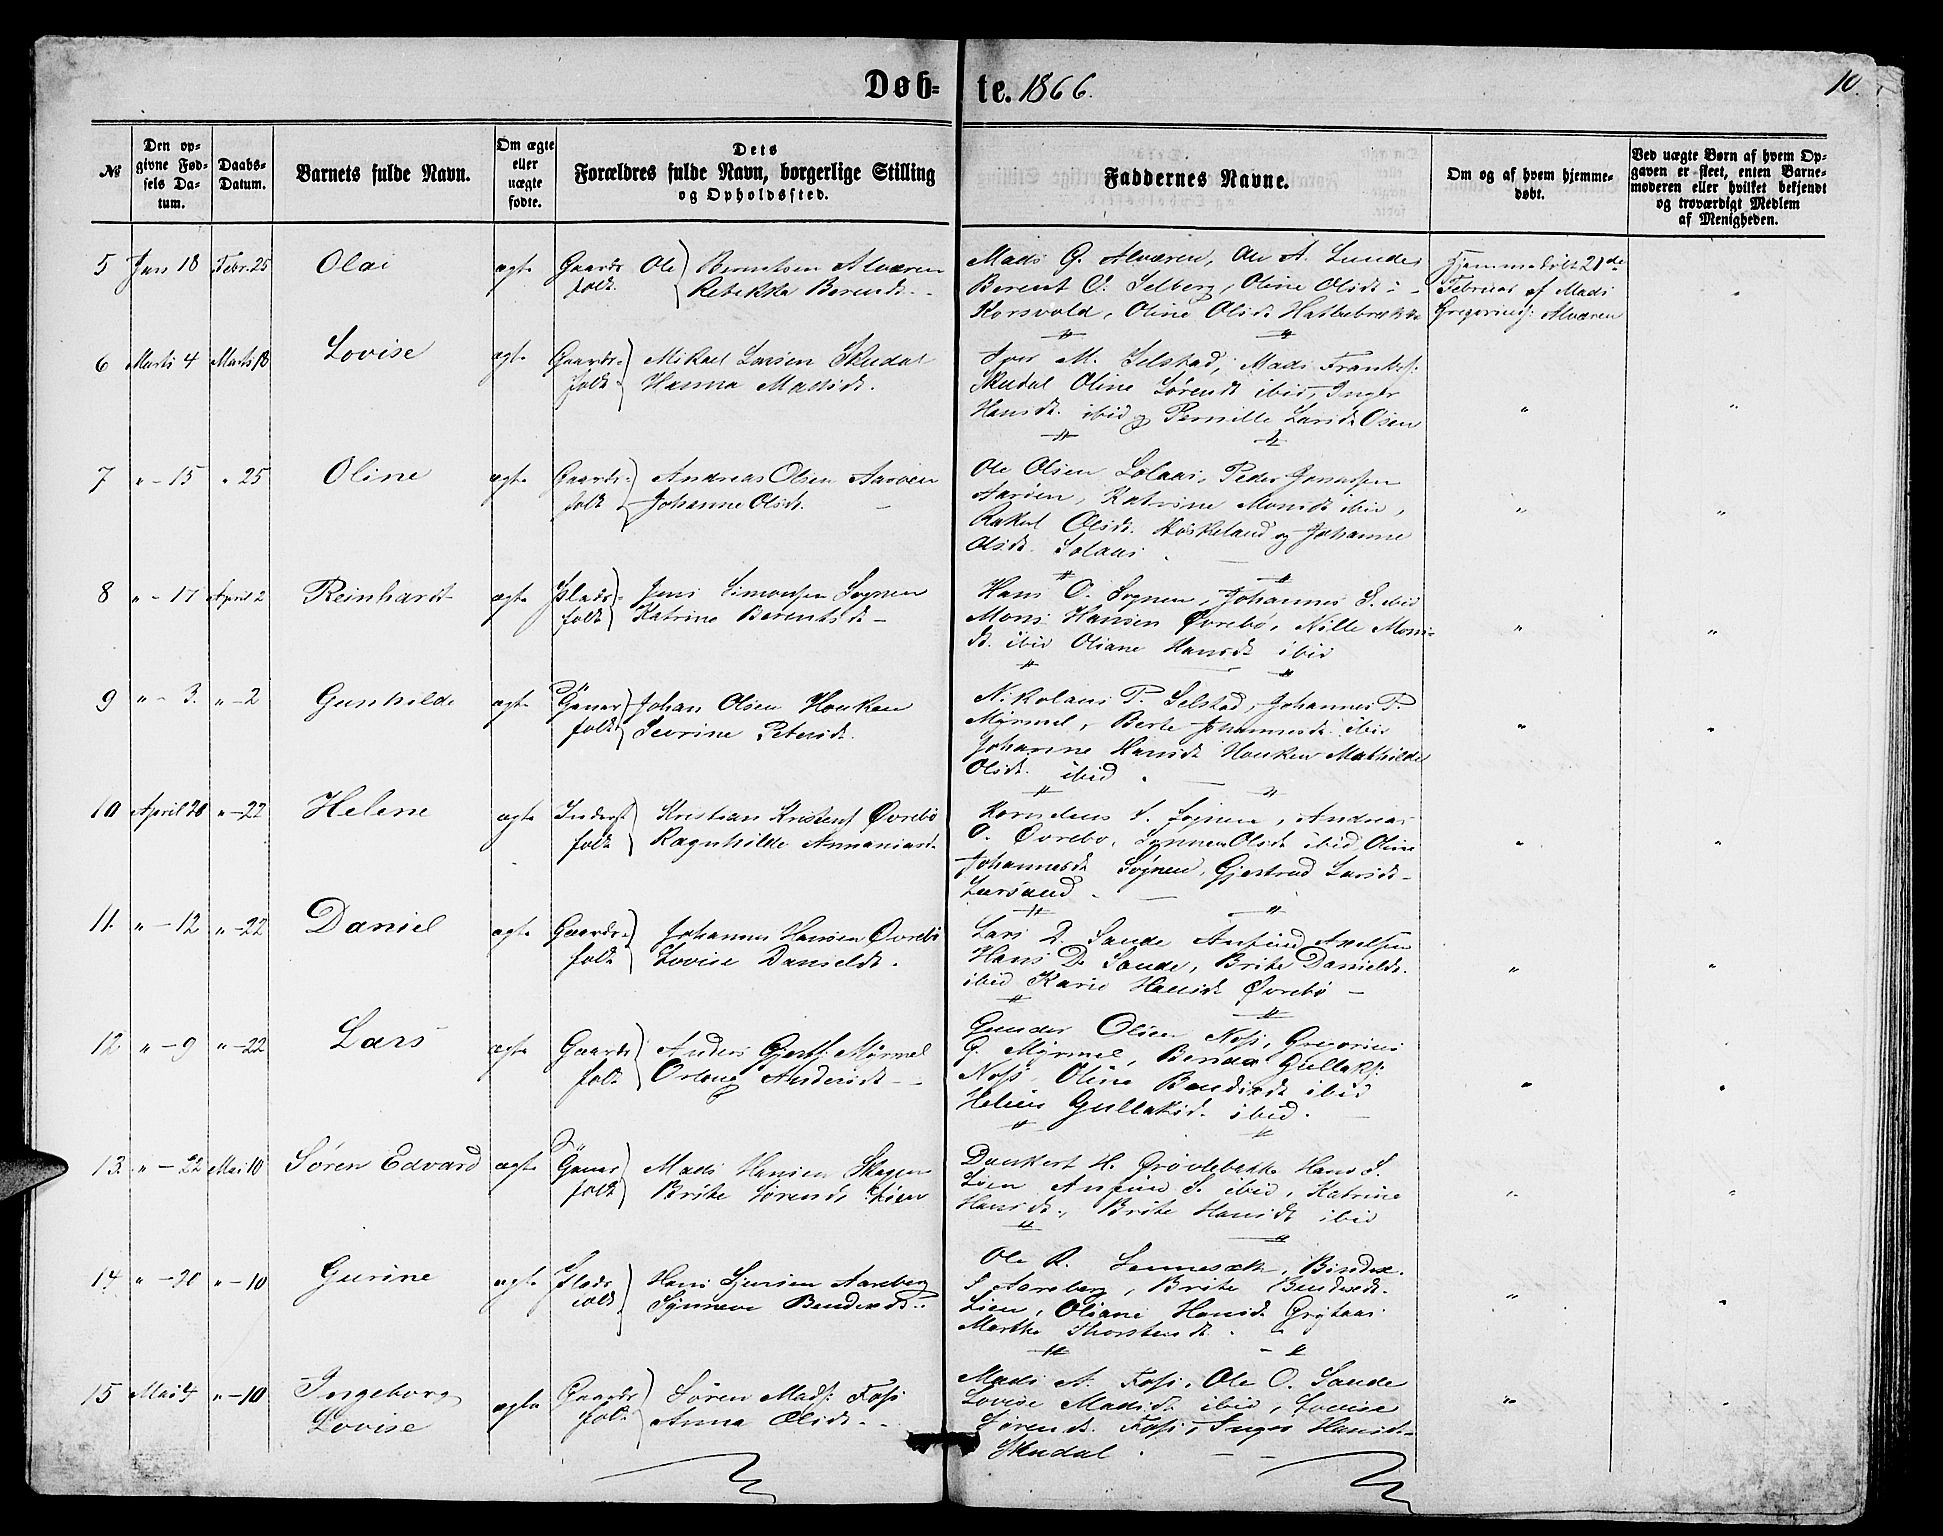 Døb=te. 1866.
10.
№
Den op-
givne Fød-
sels Da-
tum.
Daabs-
Datum.
Barnets fulde Navn.
Om ægte
eller
uægte
fødte.
Dets
Forældres fulde Navn, borgerlige Stilling
og Opholdssted.
Faddernes Navne.
Om og af hvem hjemme-
døbt.
Ved uægte Børn af hvem Op-
gaven er skeet, enten Barne-
moderen eller hvilket bekjendt
og troværdigt Medlem
af Menigheden.
5 Jan 18 Febr. 25 Olai ægte Gaardf. folk Ole Berentsen Alværen
Rebekka Berendtd. -
Mads G. Alværen, Ole A. Lunde
Berent O. Selberg, Oline Olsdt -
Korsvold, Oline Olsdt
Hjemmedøbt 21de
Februar af Mads
Gregoriusf. Alværen
"
6 Marts 4 Marts 18 Lovise ægte Gaards- folk Mikael Larsen Skudal
Hanna Madsdt.
Iver M. Selstad, Mads
Skudal Oline Sørendt ibid, Inger
Hansdt. ibid og Pernille Larsdt Osen
" "
7 " - 15 " 25 Oline ægte Gaards- folk Andreas Olsen Aarøen
Johanne Olsdt. -
Ole Olsen Solaas, Peder
Aarøen, Katrine Monsdt ibid,
Rakel Olsdt. Høskeland og Johanne
Olsdt. Solaas
" "
8 " - 17 April 2 Reinhardt ægte Plads- folk Jens Simonsen Sognen
Katrine Berentsdt -
Hans O. Sognen, Johannes S. ibid
Mons Hansen Øvrebø, Nille Mons-
dt. ibid Oliane Hansdt ibid
" "
9 " - 3. " - 2 Gunhilde ægte folk Johan Olsen Houken
Severine Petersdt.
Nikolaus P. Selstad, Johannes P.
Myrmel, Berte Johannesdt ibid
Johanne Hansdt Houken Mathilde
Olsdt. ibid.
" "
10 April 20 " - 22 Helene ægte Inderst folk Kristian Kristenf Øvrebø
Ragnhilde Annaniasdt
Kornelius S. Sognen, Andreas
O. Øvrebø, Olsdt ibid Oline
Johannesdt Sognen, Gjertrud Larsdt -
" "
11. " - 12 " - 22 Daniel ægte Gaards- folk Johannes Hansen Øvrebø
Lovise Danieldt.
Lars D. Sande Anfind Axelsen
Hans D. Sande, Brite Danieldt.
ibid Karie Hansdt Øvrebø -
" "
12 " - 9 " - 22 Lars ægte Gaards folk Anders Gjertf. Myrmel
Andersdt -
Gunder Olsen Nofs, Gregorius
G. Myrmel, Gullaksf.
Nofs, Oline Bendixdt ibid
Gullaksd. ibid.
" "
13. " - 22 Mai 10 Søren Edvard ægte folk Mads Hansen Skagen
Brite Sørendt Lien
Dankert H. Grøvlebakke Hans S.
Lien Anfind S. ibid, Katrine
Hansdt., Brite Hansdt ibid
" "
14. " - 30 " - 10 Gurine ægte Plads folk Hans Aareberg
Synneve Bendixsdt.
Ole R. Bendix
S Aareberg, Brite Bendixdt.
Lien, Oliane Hansdt Grytaas
Marthe Thorstendt.
" "
15 Mai 4 " - 10 Ingeborg
Lovise ægte Gaards folk Søren Madsf. Fofs
Anna Olsdt. -
Mads A. Fofs, Ole O. Sande
Lovise Madsdt ibid, Lovise
Sørendt. Fofs, Inger Hansdt
Skudal.
" "